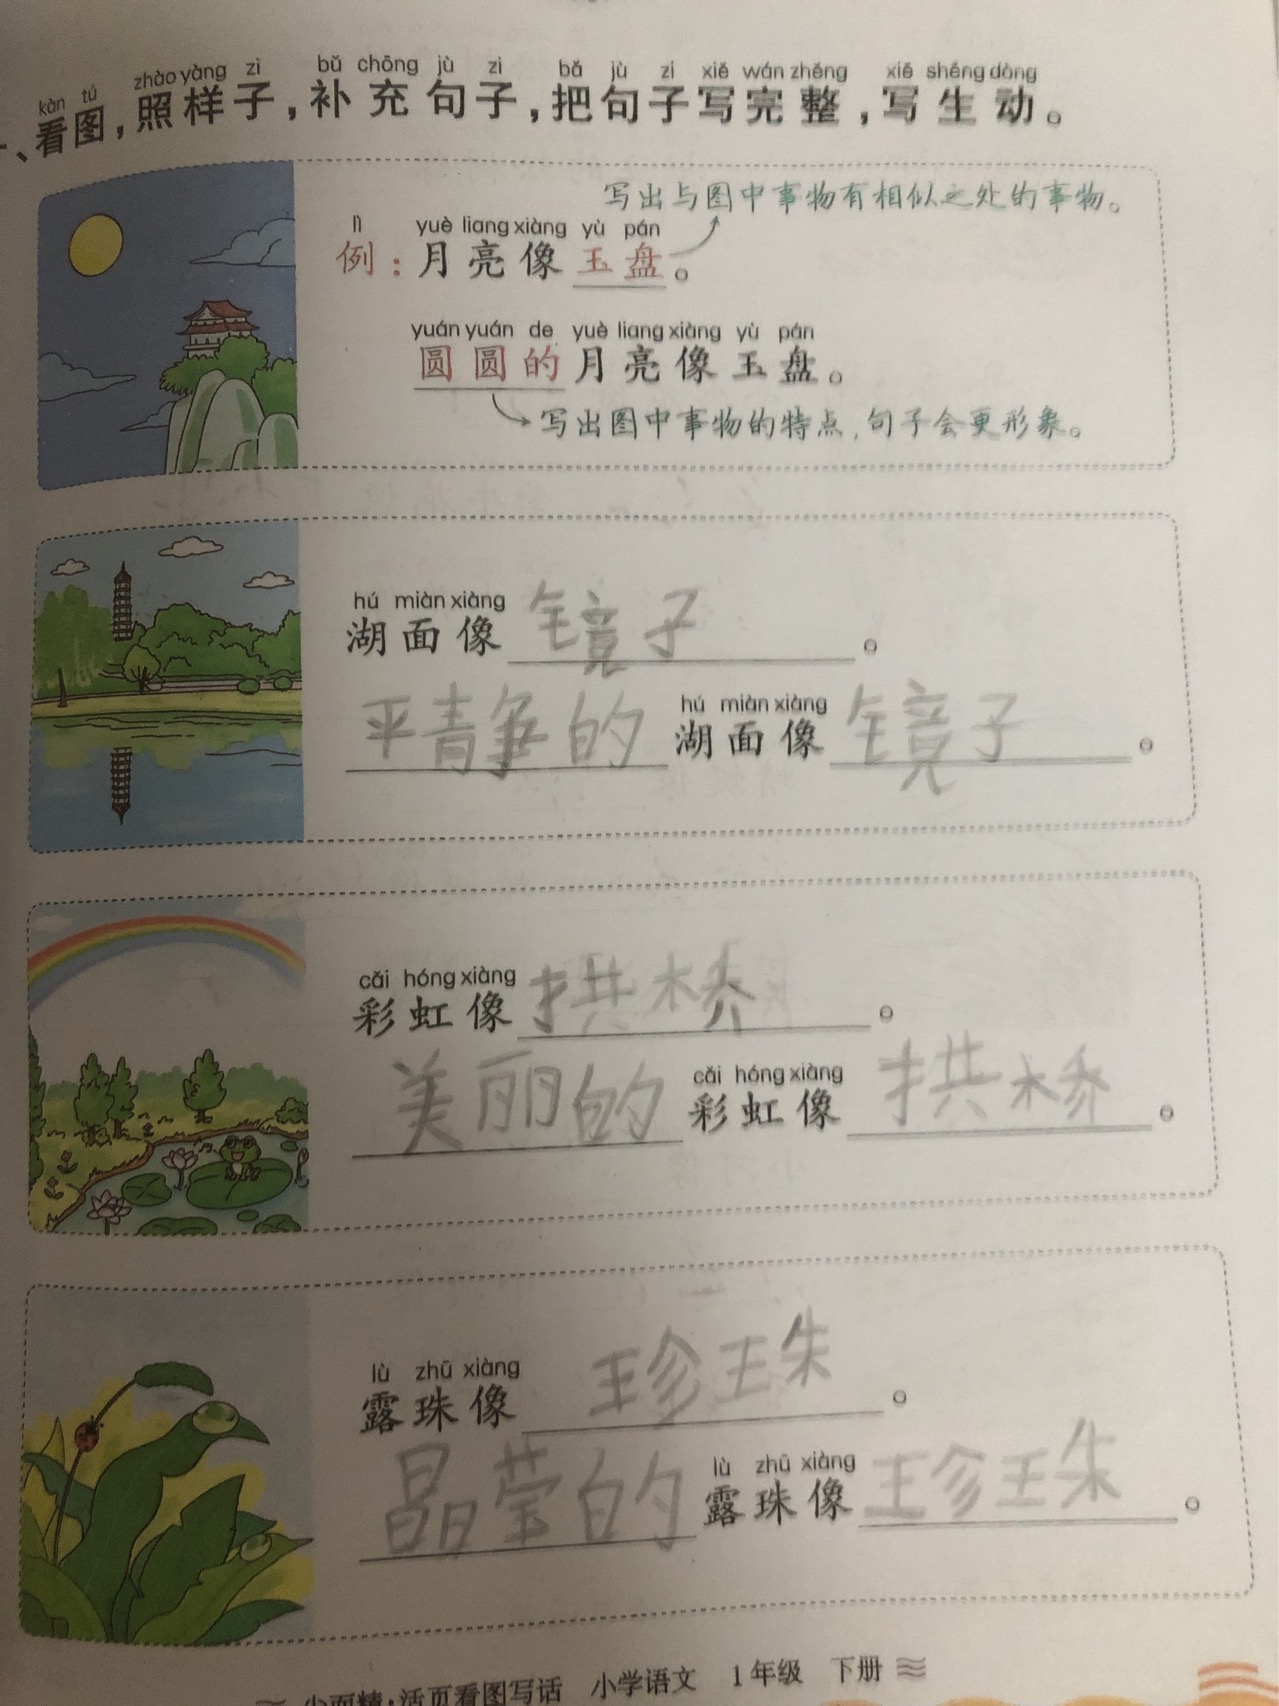 kàn tú zhào yàng zi bǔ chōng jù zi bǎ jù zi xiě wán zhěng xiě shēng dòng
一、看图，照样子，补充句子，把句子写完整，写生动。
写出与图中事物有相似之处的事物。
lì yuè liang xiàng yù pán
例：月亮像玉盘。
yuán yuán de yuè liang xiàng yù pán
圆圆的月亮像玉盘。
写出图中事物的特点，句子会更形象。
hú miàn xiàng
湖面像镜子。
hú miàn xiàng
平静的湖面像镜子。
cǎi hóng xiàng
彩虹像拱桥。
cǎi hóng xiàng
美丽的彩虹像拱桥。
lù zhū xiàng
露珠像珍珠。
lù zhū xiàng
晶莹的露珠像珍珠。
少而精·活页看图写话 小学语文 1年级 下册